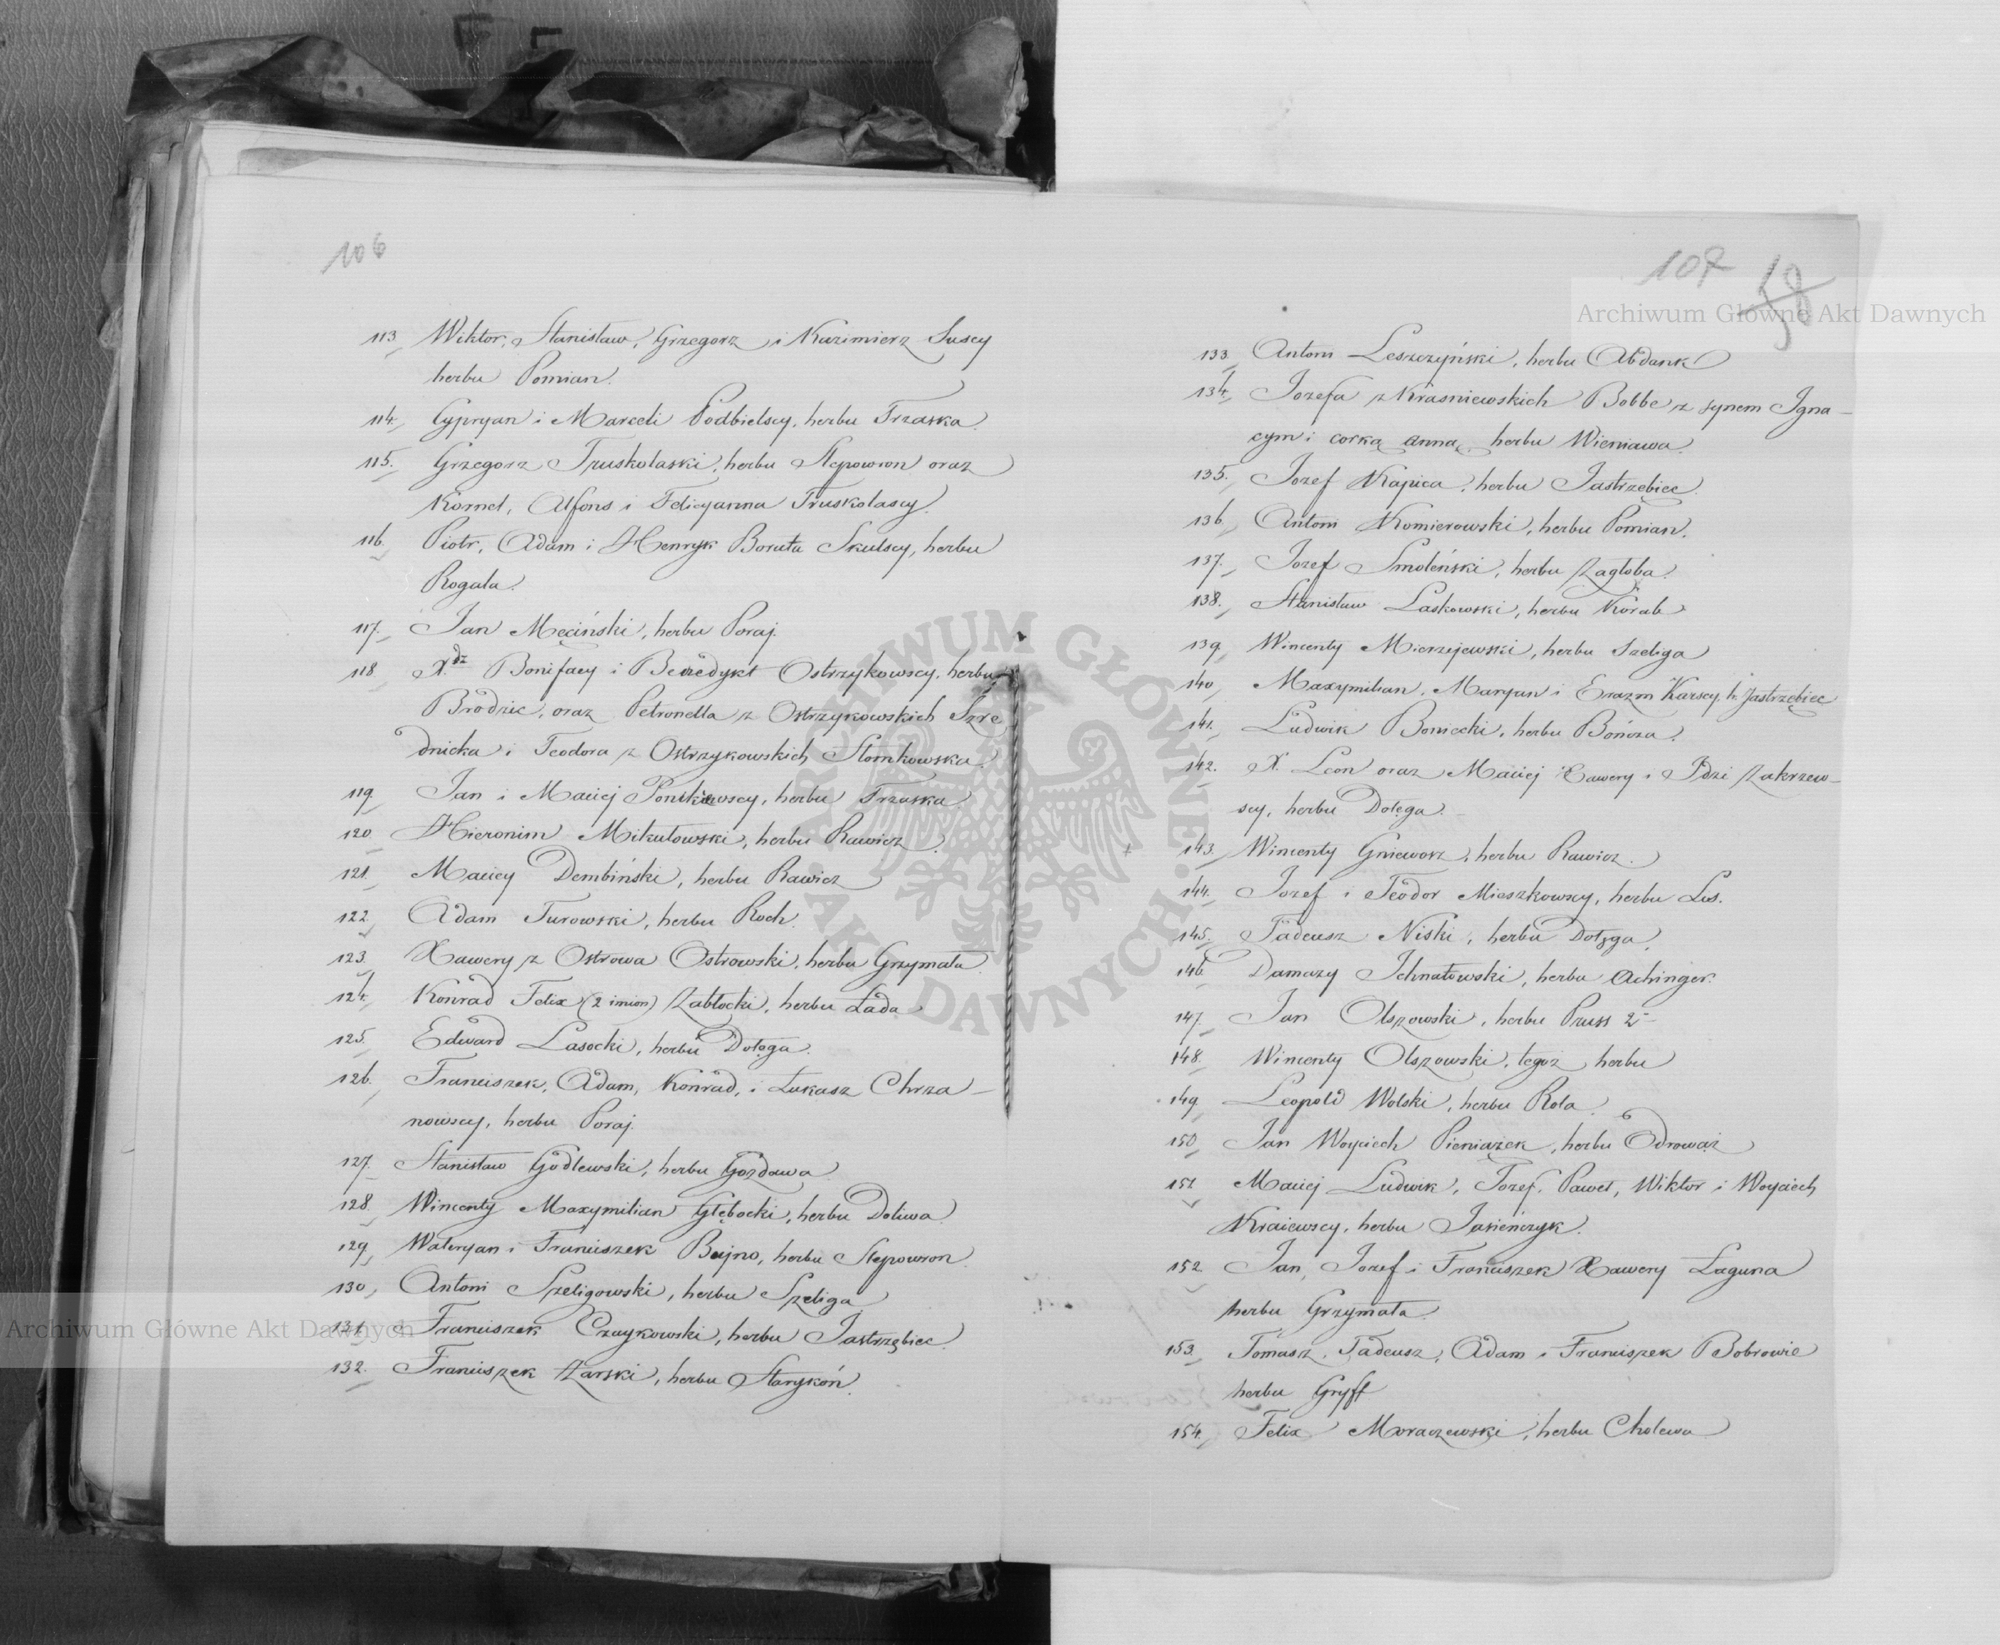 106
113. Wiktor, Stanisław, Grzegorz i Kazimierz Suscy
herbu Pomian.
114. Cypryan i Marceli Podbielscy, herbu Trzaska.
115. Grzegorz Truskolaski, herbu Slepowron oraz
Kornel, Alfons i Felicyanna Truskolascy.
116. Piotr, Adam i Henryk Boruta Skulscy, herbu
Rogala.
117. Jan Męciński, herbu Poraj.
118. X.dz Bonifacy i Benedykt Ostrzykowscy, herbu
Brodzic, oraz Petronella z Ostrzykowskich Szre
dnicka i Teodora z Ostrzykowskich Słomkowska.
119. Jan i Maciej Ponikowscy, herbu Trzaska
120. Hieronim Mikułowski, herbu Rawicz.
121. Maciey Dembiński, herbu Rawicz
122. Adam Turowski, herbu Roch.
123. Xawery z Ostrowa Ostrowski, herbu Grzymała.
124. Konrad Felix (2 imion) Zabłocki, herbu Łada
125. Edward Lasocki, herbu Dołęga.
126. Franciszek, Adam, Konrad, i Łukasz Chrza-
nowscy, herbu Poraj.
127. Stanisław Godlewski, herbu Gozdawa
128. Wincenty Maxymilian Głębocki, herbu Doliwa.
129. Waleryan i Franciszek Bujno, herbu Slepowron.
130. Antoni Szeligowski, herbu Szeliga
131. Franciszek Czaykowski, herbu Jastrzębiec.
132. Franciszek Żarski, herbu Starykoń.
107 58
133. Antoni Leszczyński, herbu Abdank
134. Jozefa z Krasniewskich Bobbe z synem Igna-
cym i corką Anną, herbu Wieniawa.
135. Jozef Kapica, herbu Jastrzębiec.
136. Antoni Komierowski, herbu Pomian.
137. Jozef Smoleński, herbu Zagłoba.
138. Stanisław Laskowski, herbu Korab
139. Wincenty Mierzejewski, herbu Szeliga
140. Maxymilian, Maryan i Erazm Karscy, h. Jastrzębiec
141. Ludwik Boniecki, herbu Bończa.
142. X. Leon oraz Maciej Xawery i Idzi Zakrzew-
scy, herbu Dołęga.
143. Wincenty Gniewosz, herbu Rawicz.
144. Jozef i Teodor Mieszkowscy, herbu Lis.
145. Tadeusz Niski, herbu Dołęga.
146. Damazy Ichnatowski, herbu Achinger.
147. Jan Olszowski, herbu Pruss 2-
148. Wincenty Olszowski, tegoż herbu
149. Leopold Wolski, herbu Rola.
150. Jan Woyciech Pieniążek, herbu Odrowąż
151. Maciej Ludwik, Jozef, Paweł, Wiktor i Woyciech
Kraiewscy, herbu Jasieńczyk.
152. Jan, Jozef i Franciszek Xawery Łaguna
herbu Grzymała.
153. Tomasz, Tadeusz, Adam i Franciszek Bobrowie
herbu Gryff
154. Felix Moraczewski, herbu Cholewa
Archiwum Główne Akt Dawnych
Archiwum Główne Akt Dawnych
ARCHIWUM GŁÓWNE AKT DAWNYCH